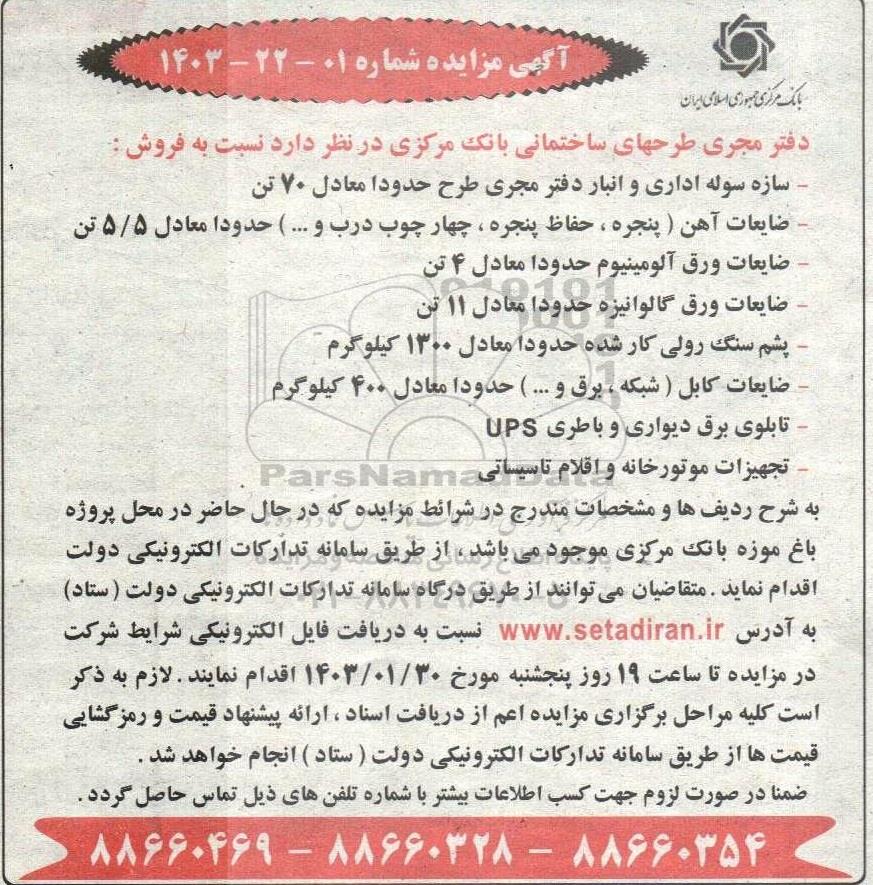 بانک مرکزی جمهوری اسلامی ایران
آگهی مزایده شماره ۰۱ - ۲۲ - ۱۴۰۳
دفتر مجری طرحهای ساختمانی بانک مرکزی در نظر دارد نسبت به فروش :
- سازه سوله اداری و انبار دفتر مجری طرح حدودا معادل ۷۰ تن
- ضایعات آهن ( پنجره ، حفاظ پنجره ، چهار چوب درب و ... ) حدودا معادل ۵/۵ تن
- ضایعات ورق آلومینیوم حدودا معادل ۴ تن
- ضایعات ورق گالوانیزه حدودا معادل ۱۱ تن
- پشم سنگ رولی کار شده حدودا معادل ۱۳۰۰ کیلوگرم
- ضایعات کابل ( شبکه ، برق و ... ) حدودا معادل ۴۰۰ کیلوگرم
- تابلوی برق دیواری و باطری UPS
- تجهیزات موتورخانه و اقلام تاسیساتی
ParsNamadData
به شرح ردیف ها و مشخصات مندرج در شرائط مزایده که در حال حاضر در محل پروژه
باغ موزه بانک مرکزی موجود می باشد ، از طریق سامانه تدارکات الکترونیکی دولت
اقدام نماید . متقاضیان می توانند از طریق درگاه سامانه تدارکات الکترونیکی دولت ( ستاد )
به آدرس www.setadiran.ir نسبت به دریافت فایل الکترونیکی شرایط شرکت
در مزایده تا ساعت ۱۹ روز پنجشنبه مورخ ۱۴۰۳/۰۱/۳۰ اقدام نمایند . لازم به ذکر
است کلیه مراحل برگزاری مزایده اعم از دریافت اسناد ، ارائه پیشنهاد قیمت و رمزگشایی
قیمت ها از طریق سامانه تدارکات الکترونیکی دولت ( ستاد ) انجام خواهد شد .
ضمنا در صورت لزوم جهت کسب اطلاعات بیشتر با شماره تلفن های ذیل تماس حاصل گردد .
۸۸۶۶۰۳۵۴ - ۸۸۶۶۰۳۲۸ - ۸۸۶۶۰۴۶۹